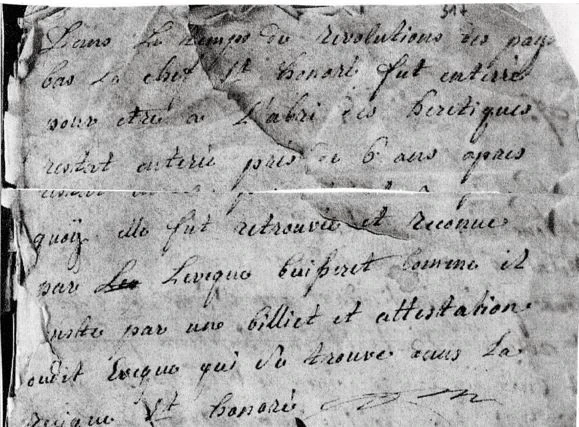 317
Dans Le temps du revolutions des pays
bas La chef St honoré fut enterré
pour etré a L'abri des heretiques
restat enterié près de 6 ans apres
quoÿ elle fut retrouvée et reconue
par Leveque buisseret Comme il
nste par une billiet et attestation
oudit Eveque qui Se trouve dans La
St honoré